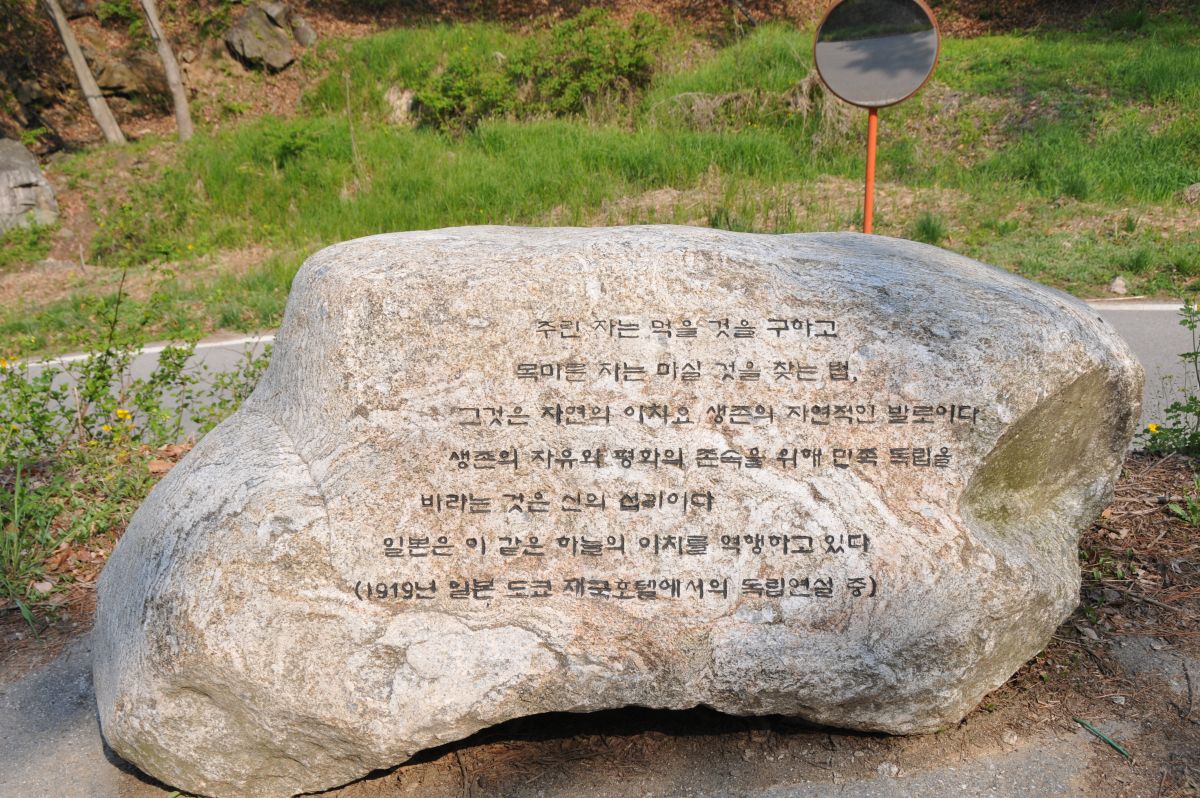 주린 자는 먹을 것을 구하고
목마른 자는 마실 것을 찾는 법,
그것은 자연의 이치요 생존의 자연적인 발로이다.
생존의 자유와 평화의 존속을 위해 민족 독립을
바라는 것은 신의 섭리이다
일본은 이 같은 하늘의 이치를 역행하고 있다
(1919년 일본 도쿄 제국호텔에서의 독립연설 중)